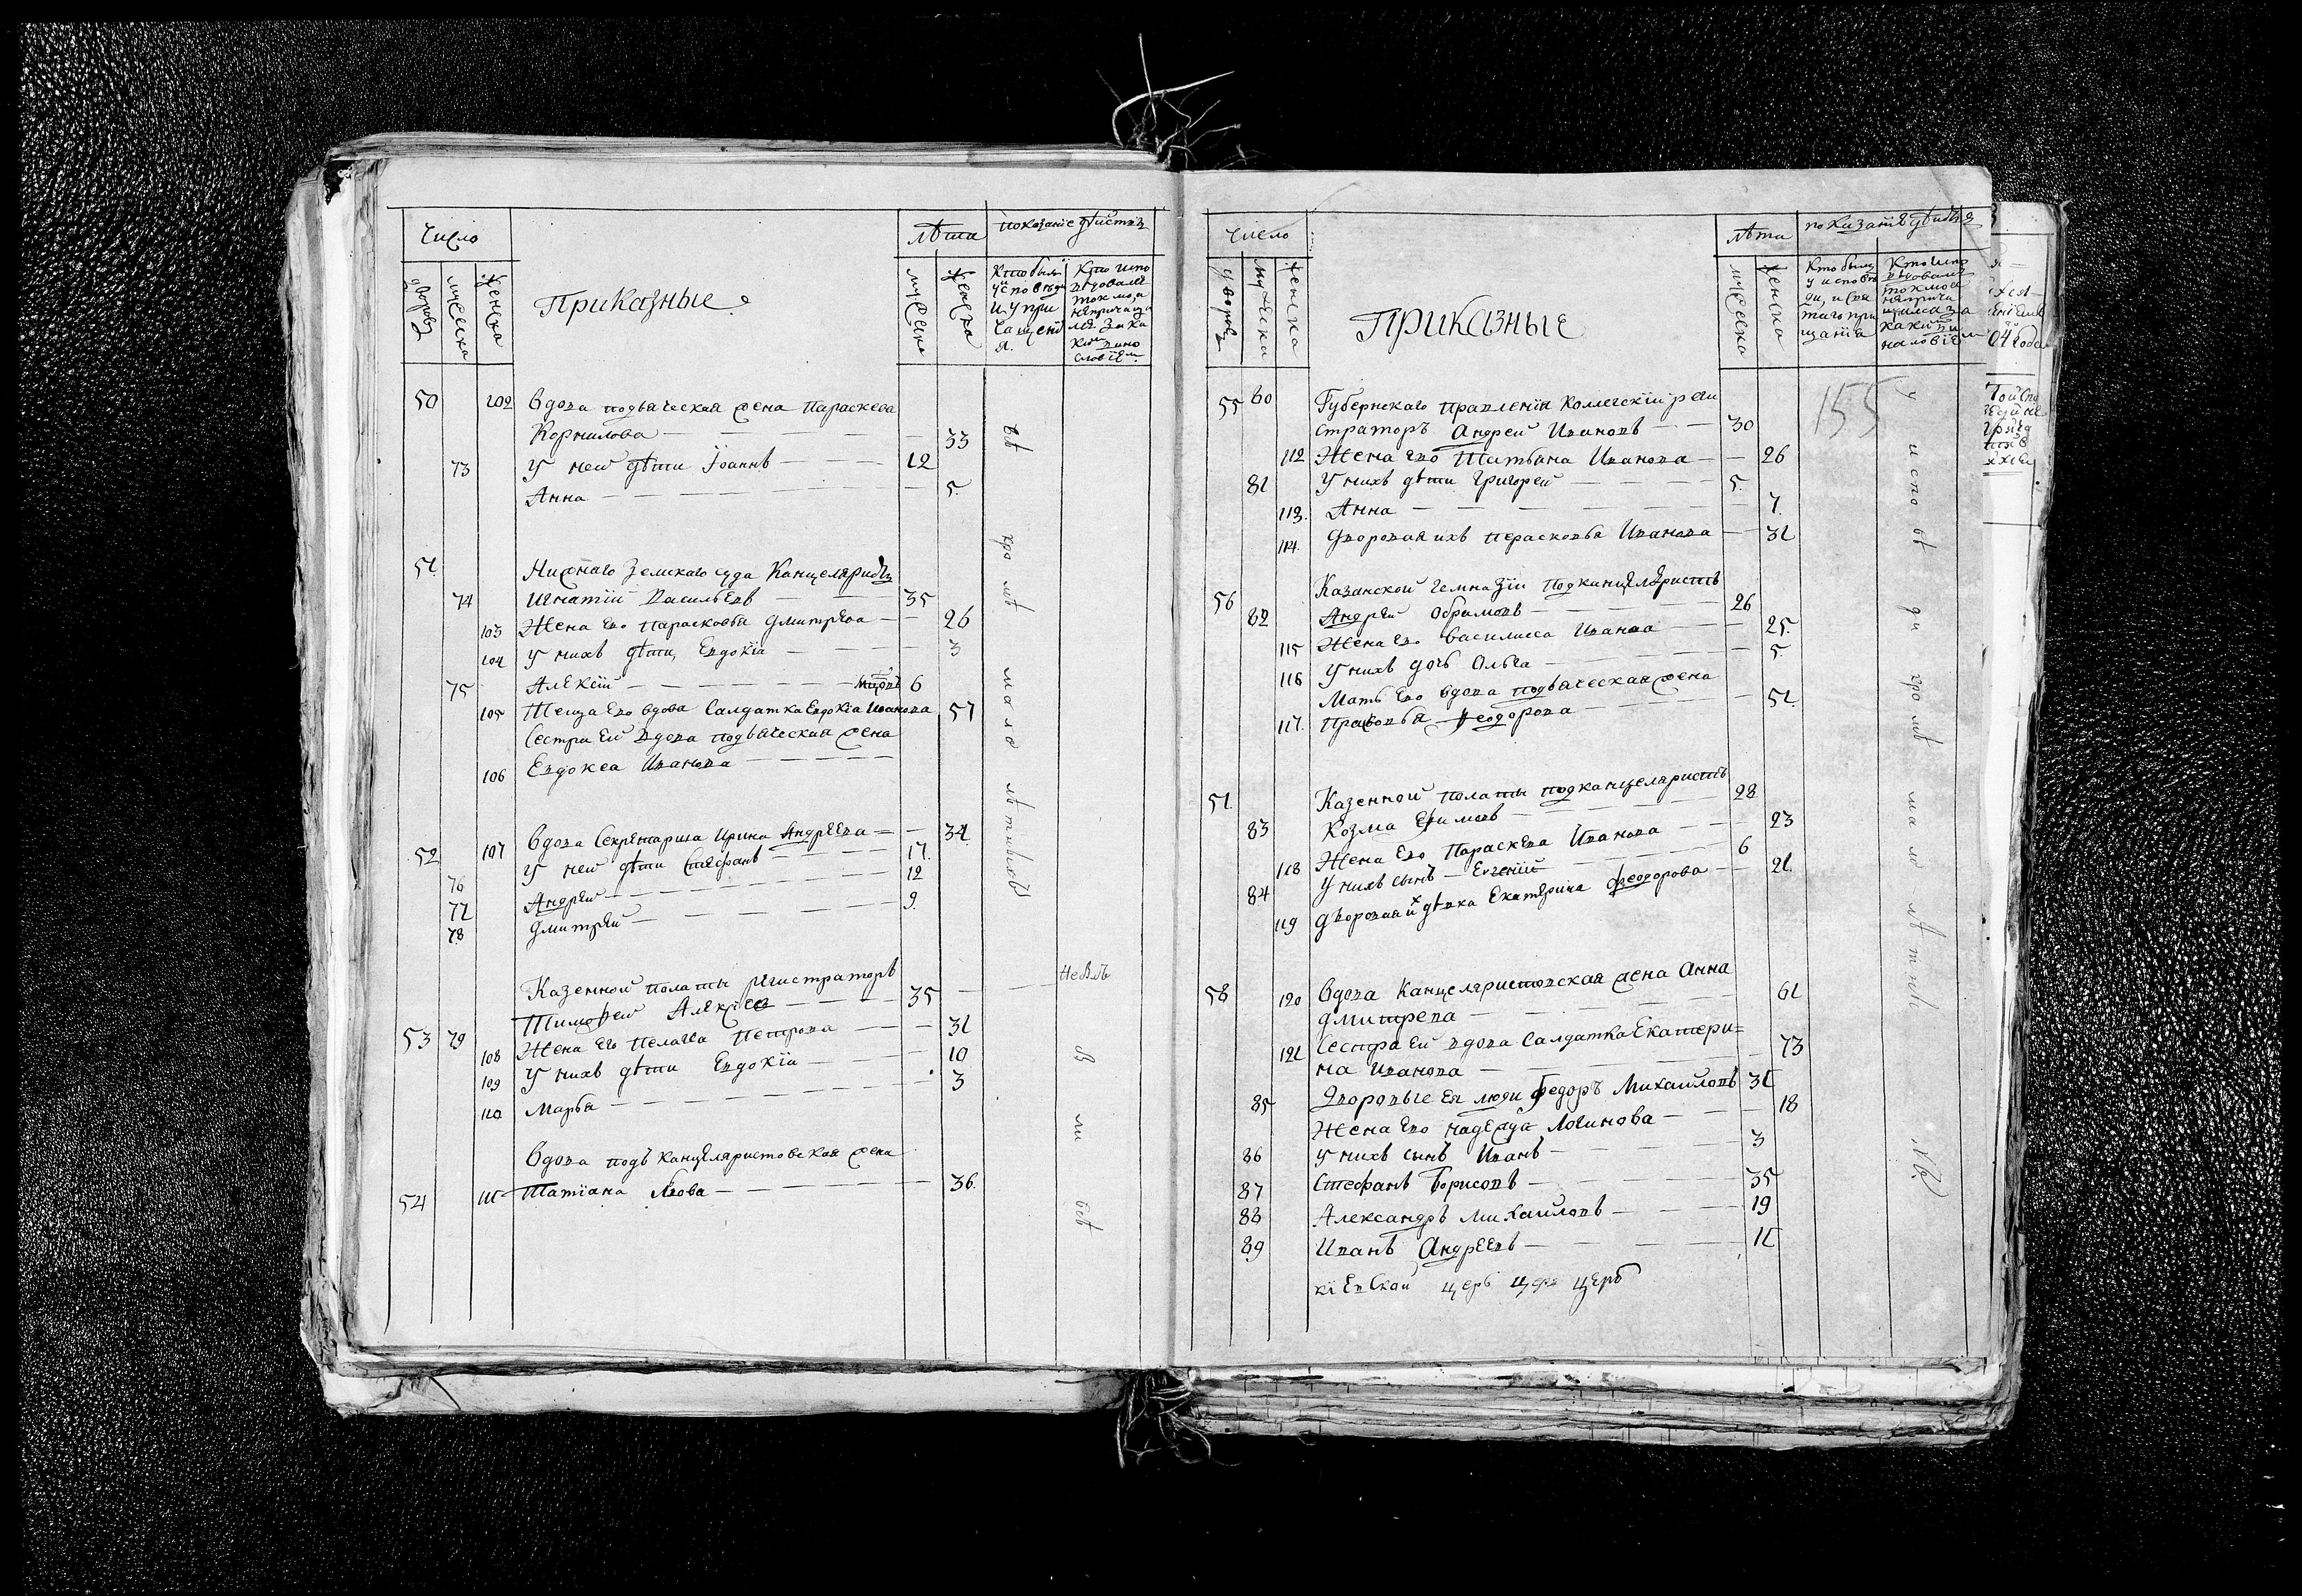 Число
лѣта
показаніе дѣиств
дворовъ
мужеска
женска
Приказные
мужеска
женска
Кто были
у исповѣди
и у при
чащені
я.
Кто испо
вѣдовалс
токмо, а
непричащ
50 102 Вдова подьяческая жена Параскева
Корнилова — 33
73 У неи дѣти Іоаннъ — 12
Анна — 5.
51. Нижнаго Земскаго суда Канцеляристъ
74 Игнатій Васильевъ — 35
103 Жена ево Парасковья Дмитрева — 26
104 У нихъ дѣти, Евдокіа — 3
75 Алексіи — 6
105 Теща ево вдова Салдатка Евдокіа Иванова 57
Сестра Еи вдова подьяческая жена
106 Евдокеа Иванова —
52 107 Вдова Секретарша Ирина Андреева — 34
76 У неи дѣти Стефанъ — 17.
77 Андреи — 12
78 Дмитреи — 9.
Казенной полаты регистраторъ
53 79 Тимофеи Алексіев — 35
108 Жена Его Пелагеа Петрова — 31
109 У нихъ дѣти Евдокіа — 10
110 Марѳа — 3
Вдова подъканцеляристовская жена
54 111 Татіана Львова — 36.
вѣ кро мѣ мало лѣтныхъ
ли
Число
лѣта
показаніѣ дѣиств
дворовъ
мужеска
женска
Приказные
мужеска
женска
Кто были
у исповѣ
ди, и свя
таго при
щаніа
Кто испо
вѣдовалс
токмо а
неприча
щалися за
каким ви
нословіем
155
55 80 Губернскаго правленіи Коллегскіи реги
страторъ Андреи Ивановъ — 30
112 Жена ево Татьяна Иванова — 26
81 У нихъ дѣти Григореи — 5.
113. Анна — 7.
114. Дворовая ихъ Перасковья Иванова — 31
Казанской гемназіи подканцеляристъ
56 82 Андреи Обрамовъ — 26
115 Жена ево Василисса Иванова — 25.
116 У нихъ дочь Ольга — 5.
Мать ево вдова подьяческая жена
117. Прасковья Феодорова — 51.
57. Казенной полаты подканцеляристъ
83 Козма Ефимовъ — 28
118 Жена ево Параскева Иванова — 23
84 У нихъ сынъ — Евгеніи — 6
119 Дворовая их дѣвка Екатерина Феодорова — 21.
58 120 Вдова Канцеляристовская жена Анна
Дмитрева — 61
121 Сестра Еи вдова Салдатка Екатери=
на Иванова — 73
85 Дворовые ея люди Федоръ Михаиловъ 31
Жена ево Надежда Логинова — 18
86 У нихъ сынъ Иванъ — 3
87 Стефанъ Борисовъ — 35
88 Александръ Михаиловъ — 19
89 Иванъ Андреевъ — 11
кіевской церь церь церь
у испо вѣ ди кро мѣ ма ло лѣ тнѣ
04 года